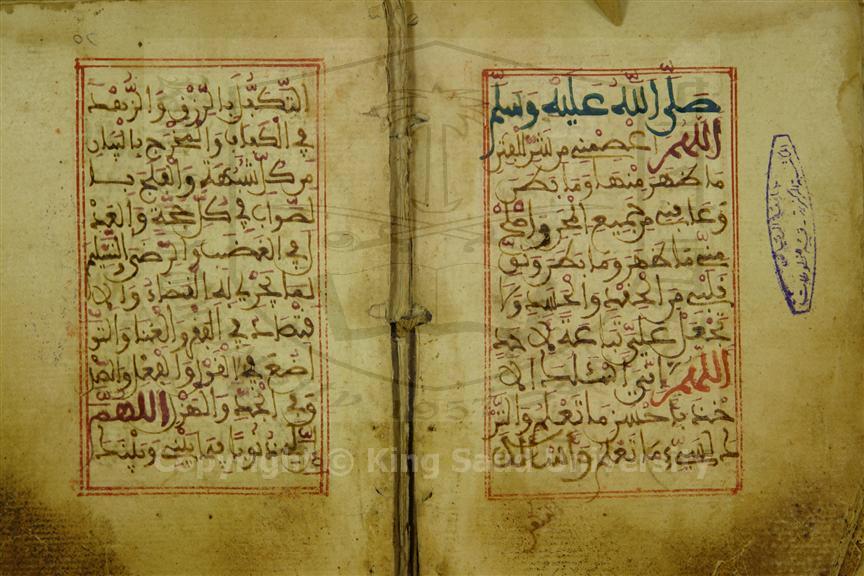 صَلَّى اللهُ عَلَيْهِ وَسَلَّمَ
اللهم اعصمني من شر الفتن
ما ظهر منها وما بطن
وعافني من جميع المحن واصلح
مني ما ظهر وما بطن ونق
قلبي من الحقد والحسد ولا
تجعل علي تباعة لاحد
اللهم إني أسئلك الا
خذ بأحسن ما تعلم والتر
ك لسيئ ما تعلم وأسئلك
التكفل بالرزق والزهد
في الكفاف والمخرج بالبيان
من كل شبهة والفلج با
لصواب في كل حجة والعد
ل في الغضب والرضى والتسليم
لما يجري به القضاء والا
قتصاد في الفقر والغنا والتو
اضع في القول والفعل والصد
ق في الجد والهزل اللهم
إن لي ذنوبا فيما بيني وبينك
Copyright © King Saud University
1957